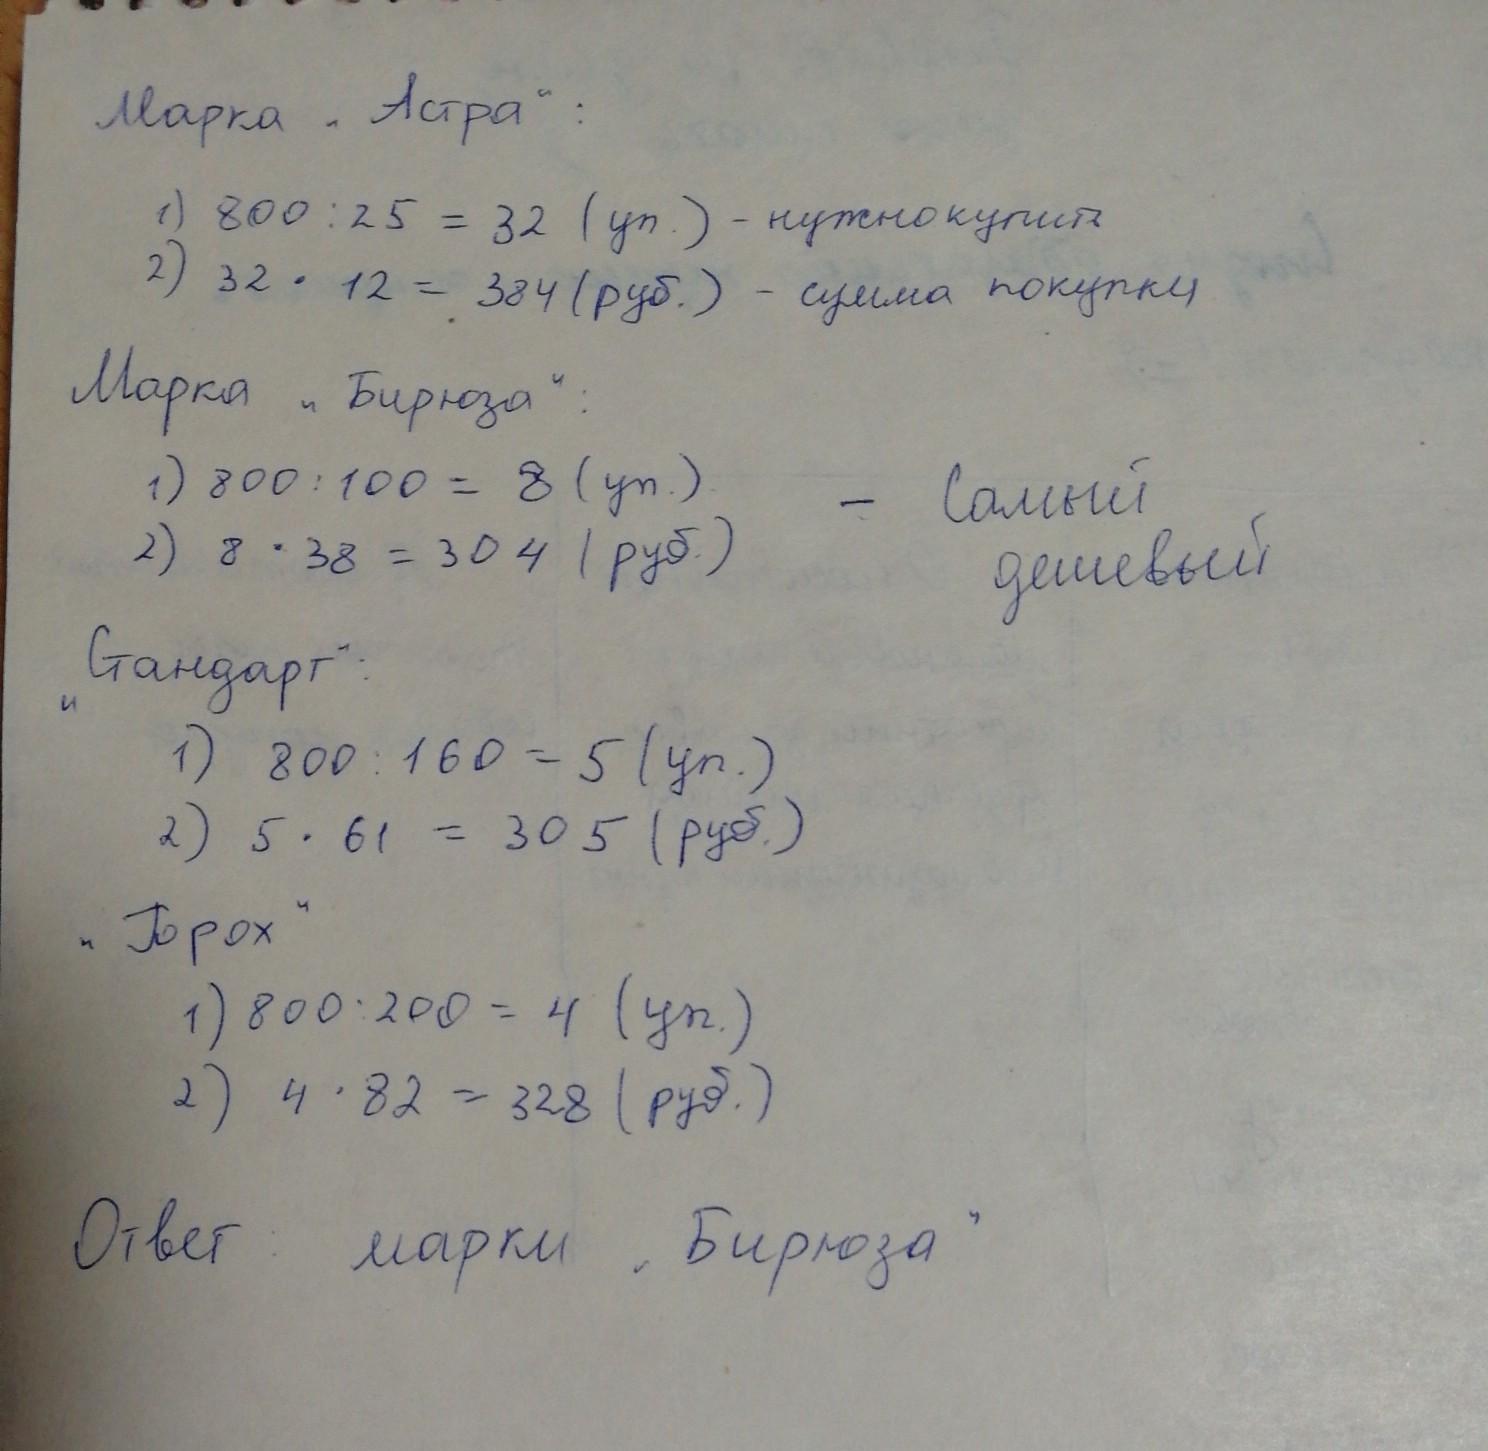 Марка „Астра“:
1) 800 : 25 = 32 (уп.) - нужно купить
2) 32 · 12 = 384 (руб.) - сумма покупки
Марка „Бирюза“:
1) 800 : 100 = 8 (уп.)
2) 8 · 38 = 304 (руб.)
- Самый
дешевый
„Стандарт“:
1) 800 : 160 = 5 (уп.)
2) 5 · 61 = 305 (руб.)
„Горох“
1) 800 : 200 = 4 (уп.)
2) 4 · 82 = 328 (руб.)
Ответ: марки „Бирюза“